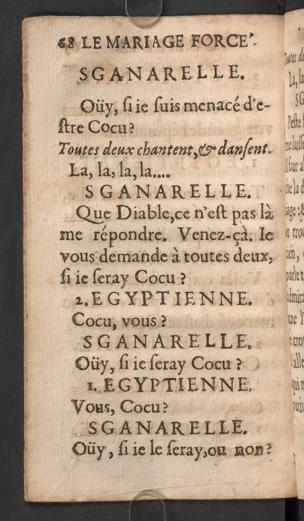 68 LE MARIAGE FORCE'.
SGANARELLE.
Oüy, ſi ie ſuis menacé d'e-
ſtre Cocu?
Toutes deux chantent, & danſent.
La, la, la, la....
SGANARELLE.
Que Diable, ce n'eſt pas là
me répondre. Venez-çà. Ie
vous demande à toutes deux,
ſi ie ſeray Cocu ?
2. EGYPTIENNE.
Cocu, vous ?
SGANARELLE.
Oüy, ſi ie ſeray Cocu ?
1. EGYPTIENNE.
Vous, Cocu?
SGANARELLE.
Oüy, ſi ie le ſeray, ou non?